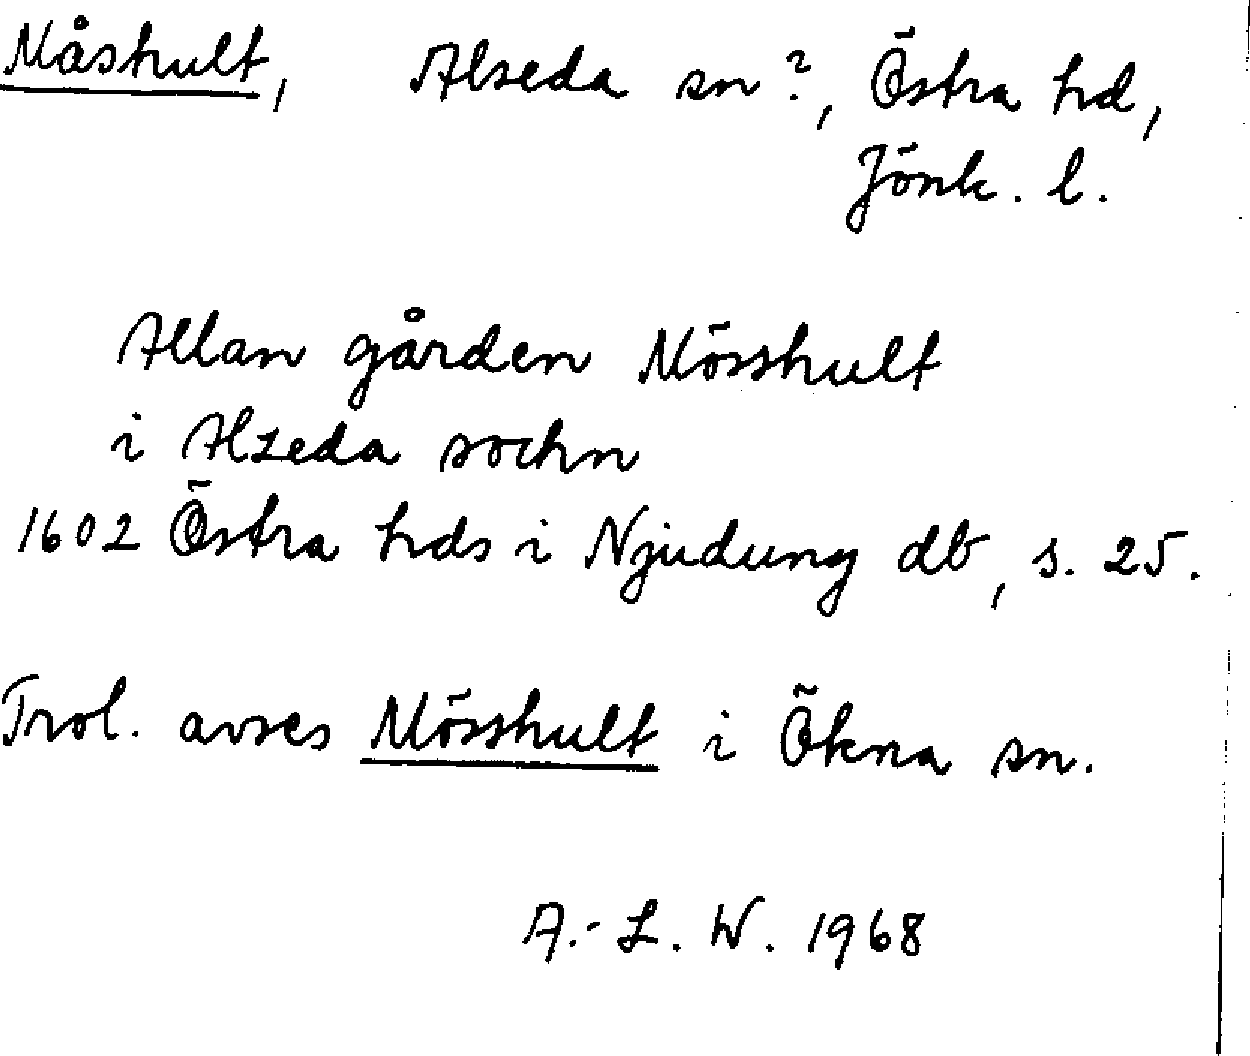 Måshult, Alseda sn?, Östra hd,
Jönk. l.
Allan gården Mösshult
i Alzeda sochn
1602 Östra hds i Njudung db, s. 25.
Trol. avses Mösshult i Ökna sn.
A.-L. W. 1968